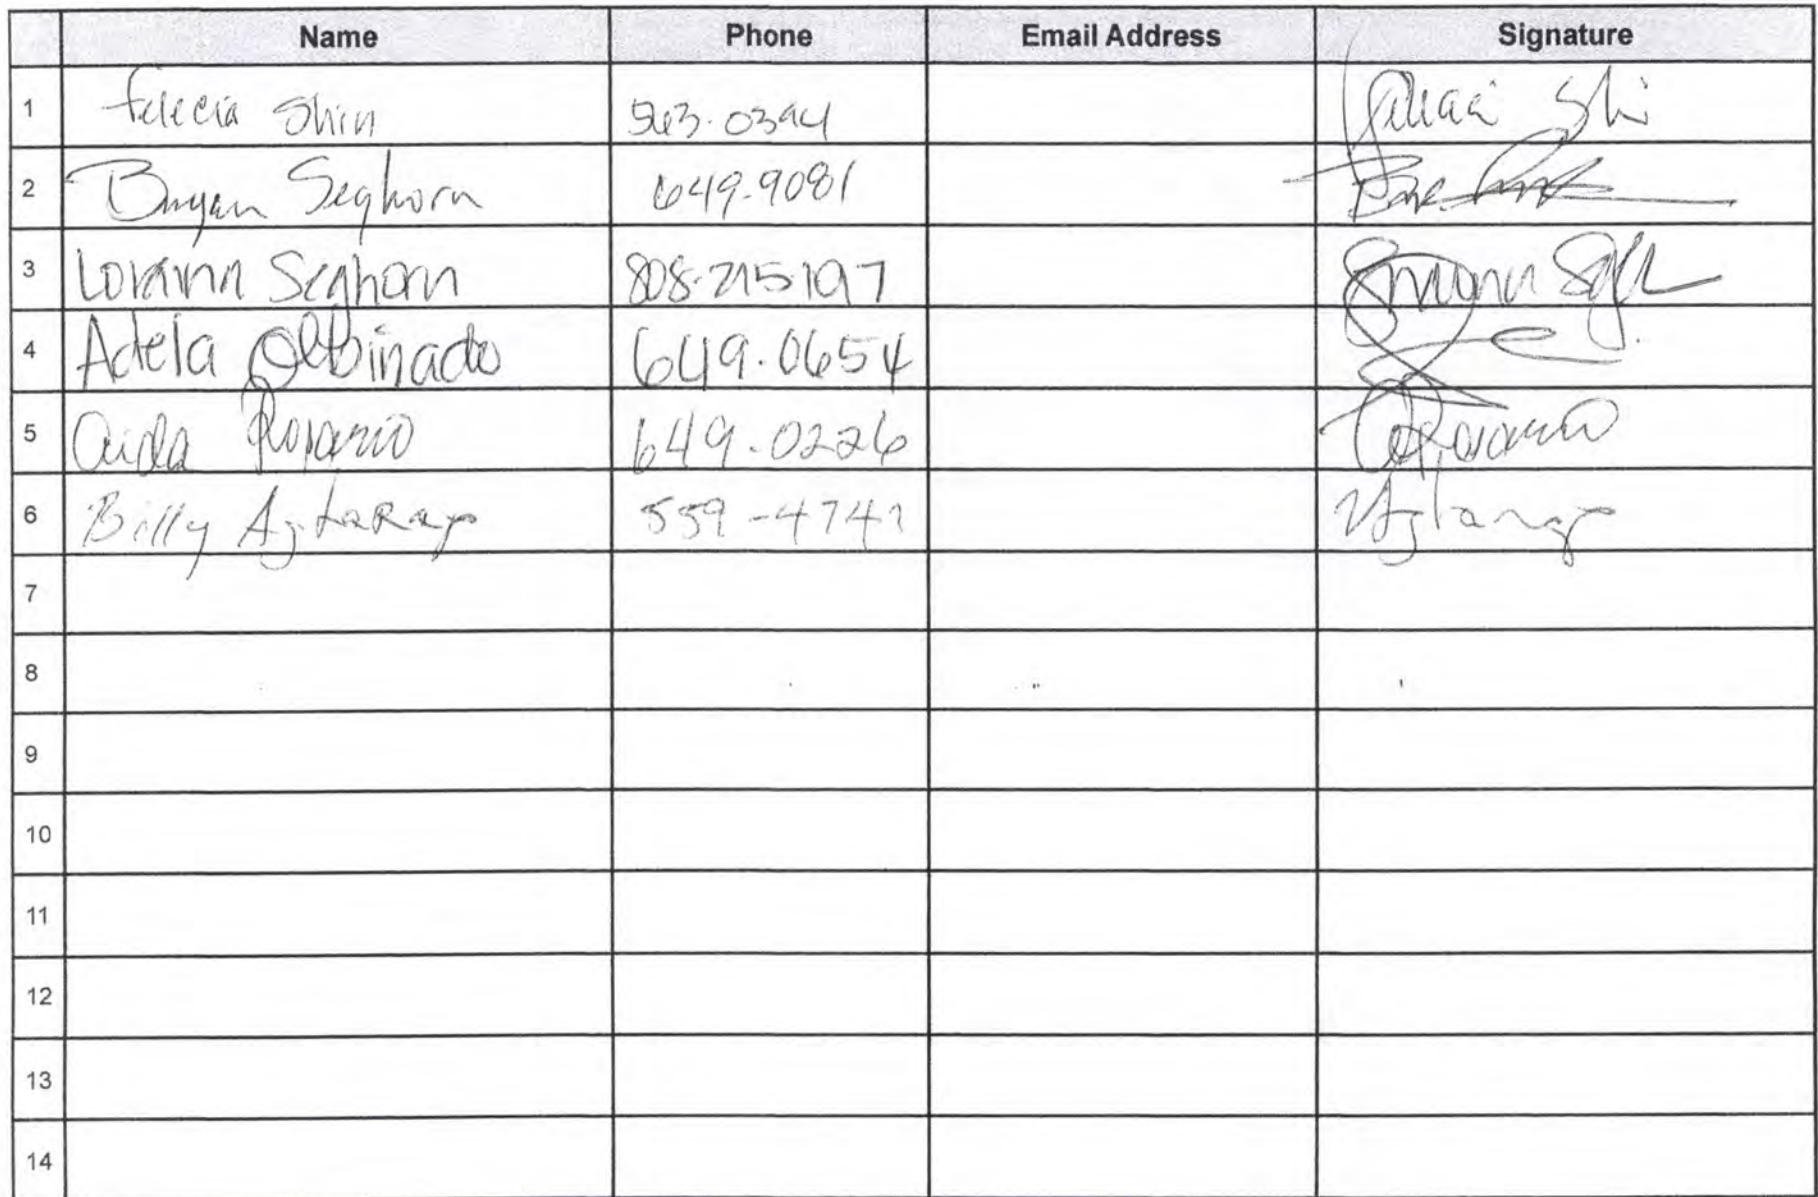 Name Phone Email Address Signature
1 Felecia Shin 563.0394
2 Bryan Seghorn 649-9081
3 Lorann Seghorn 808-215-1097
4 Adela Albinado 649.0654
5 Aida Rosario 649-0226
6 Billy Agtarap 559-4741 Agtarap
7
8
9
10
11
12
13
14